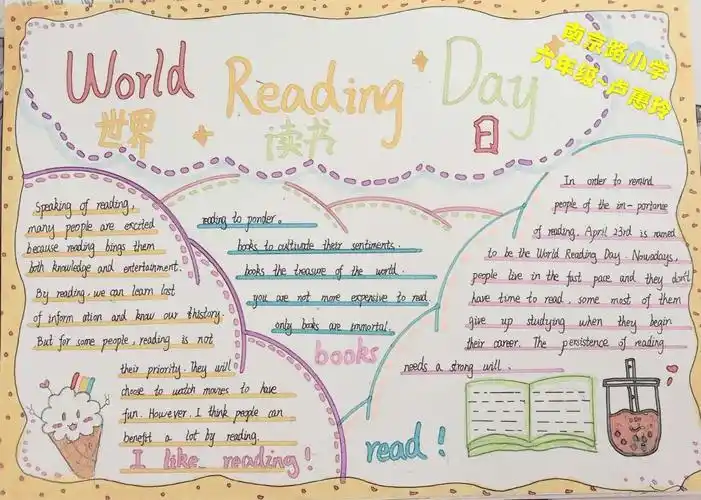 World Reading Day
世界 读书 日
南京路小学
六年级·卢惠玲
Speaking of reading,
many people are excited
because reading bings them
both knowledge and entertainment.
By reading, we can learn lost
of inform ation and know our history.
But for some people, reading is not
their priority. They will
choose to watch movies to have
fun. However, I think people can
benefit a lot by reading.
I like reading!
reading to ponder.
books to cultivate their sentiments.
books the treasure of the world.
you are not more expensive to read
only books are immortal.
books
read!
In order to remind
people of the im-portance
of reading. April 23rd is named
to be the World Reading Day. Nowadays,
people live in the fast pace and they don't
have time to read. some most of them
give up studying when they begin
their career. The persistence of reading
needs a strong will.